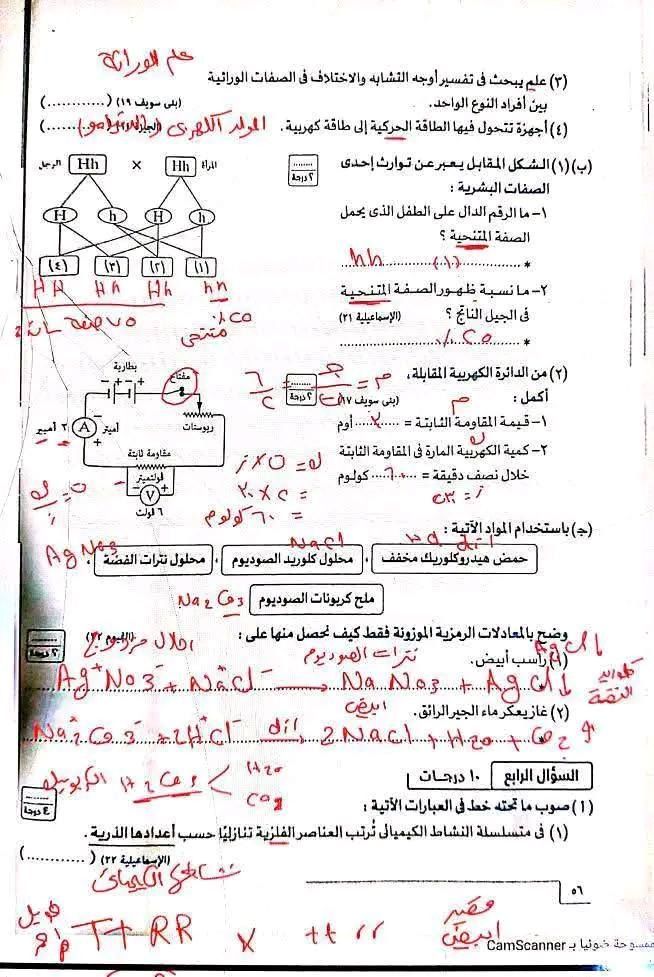 علم الوراثة
(٣) علم يبحث فى تفسير أوجه التشابه والاختلاف فى الصفات الوراثية
بين أفراد النوع الواحد. (بنى سويف ١٩) (............)
(٤) أجهزة تتحول فيها الطاقة الحركية إلى طاقة كهربية. (............)
المولد الكهربى
(ب) (١) الشكل المقابل يعبر عن توارث إحدى
الصفات البشرية :
٢ درجة
المرأة Hh × Hh الرجل
H h H h
(٤) (٣) (٢) (١)
HH Hh Hh hh
١- ما الرقم الدال على الطفل الذى يحمل
الصفة المتنحية ؟
* hh (١)
٢- ما نسبة ظهور الصفة المتنحية
فى الجيل الناتج ؟ (الإسماعيلية ٢١)
* ٢٥ ٪
٪ ٢٥
متنحى
٧٥ صفة سائدة
(٢) من الدائرة الكهربية المقابلة،
أكمل : (بنى سويف ١٧)
٢ درجة
م = جـ / ت = ٦ / ٢
١- قيمة المقاومة الثابتة = ...٣... أوم
٢- كمية الكهربية المارة فى المقاومة الثابتة
خلال نصف دقيقة = ...٦٠... كولوم
ز = ٣٠ ث
ك = ت × ز
= ٢ × ٣٠
= ٦٠ كولوم
ت = ك / ز
بطارية
مفتاح
ريوستات
أميتر
A
٢ أمبير
مقاومة ثابتة
فولتميتر
V
٦ فولت
(جـ) باستخدام المواد الآتية :
HCl dil NaCl AgNO3
حمض هيدروكلوريك مخفف ، محلول كلوريد الصوديوم ، محلول نترات الفضة ،
ملح كربونات الصوديوم Na2CO3
وضح بالمعادلات الرمزية الموزونة فقط كيف نحصل منها على : (الفيوم ٢٢)
٢ درجة
احلال مزدوج
(١) راسب أبيض. AgCl↓
نترات الصوديوم
كلوريد الفضة
Ag⁺NO3⁻ + Na⁺Cl⁻ ⟶ NaNO3 + AgCl↓
ابيض
(٢) غاز يعكر ماء الجير الرائق.
Na2⁺CO3⁻ + 2H⁺Cl⁻ dil⟶ 2NaCl + H2O + CO2↑
H2CO3 < H2O
CO2
السؤال الرابع ١٠ درجات
٤ درجة
(١) صوب ما تحته خط فى العبارات الآتية :
(١) فى متسلسلة النشاط الكيميائى تُرتب العناصر الفلزية تنازليًا حسب أعدادها الذرية.
(الإسماعيلية ٢٢) (............)
نشاطها الكيميائى
٥٦
طويل
TT RR × tt rr
قصير
ابيض
ممسوحة ضوئيا بـ CamScanner